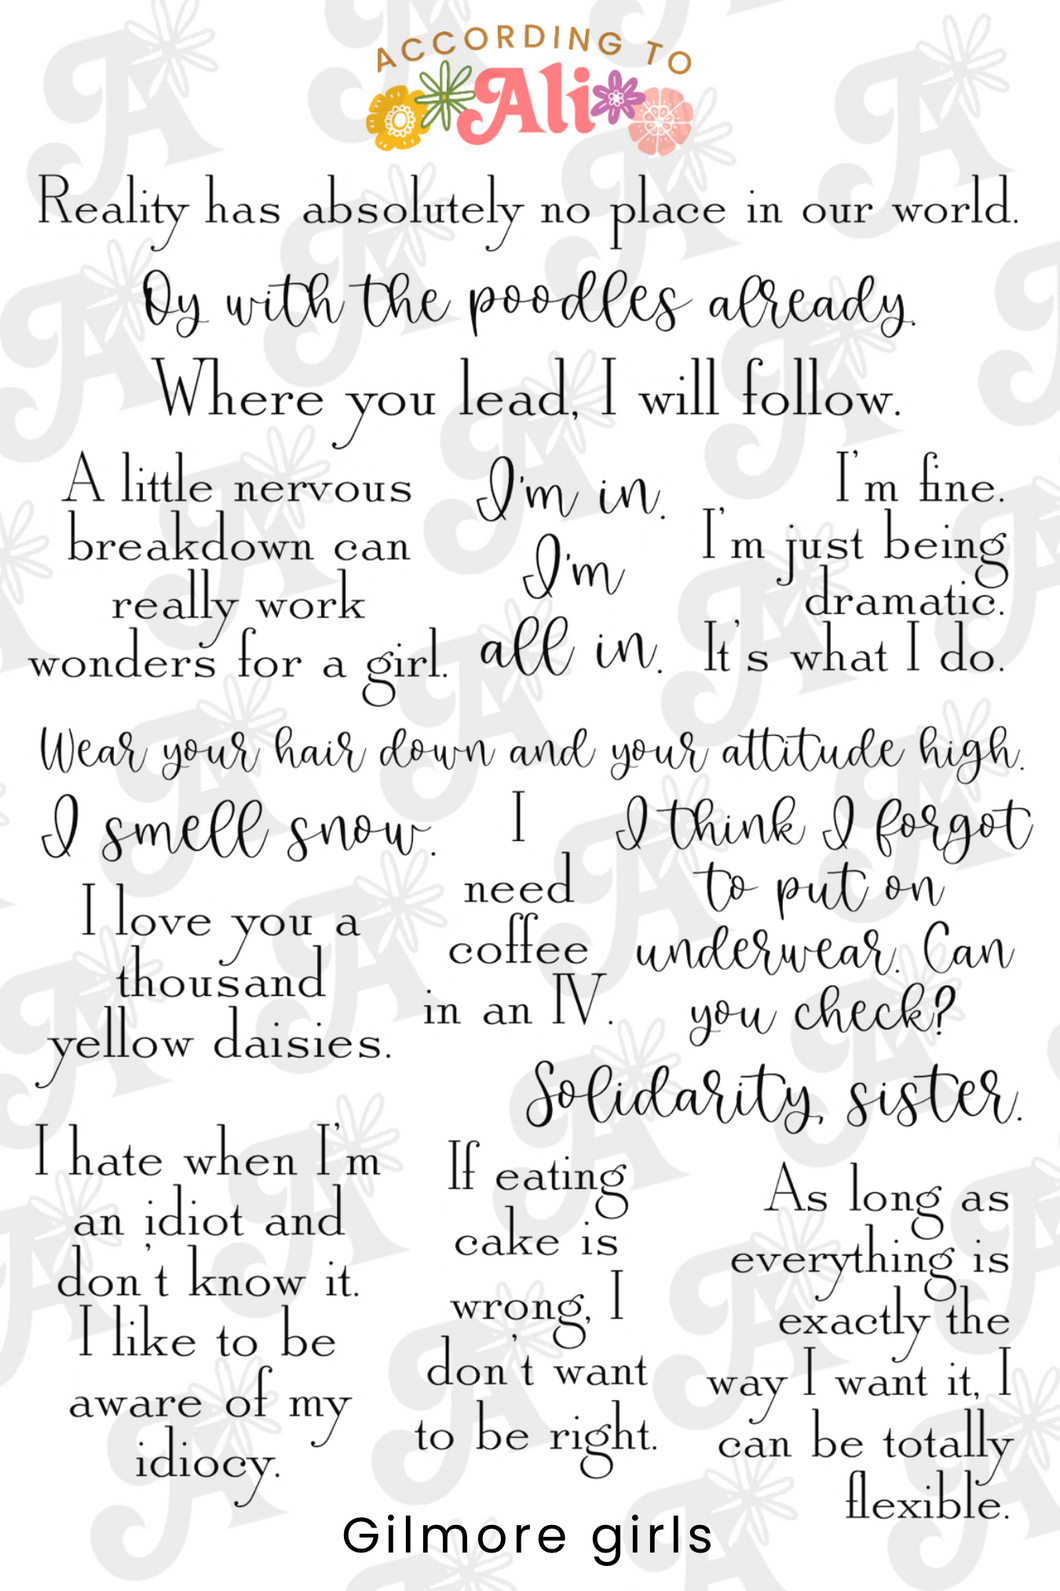 ACCORDING TO
Ali
Reality has absolutely no place in our world.
Oy with the poodles already.
Where you lead, I will follow.
A little nervous
breakdown can
really work
wonders for a girl.
I'm in.
I'm
all in.
I'm fine.
I'm just being
dramatic.
It's what I do.
Wear your hair down and your attitude high.
I smell snow.
I
need
coffee
in an IV.
I think I forgot
to put on
underwear. Can
you check?
I love you a
thousand
yellow daisies.
Solidarity, sister.
I hate when I'm
an idiot and
don't know it.
I like to be
aware of my
idiocy.
If eating
cake is
wrong, I
don't want
to be right.
As long as
everything is
exactly the
way I want it, I
can be totally
flexible.
Gilmore girls